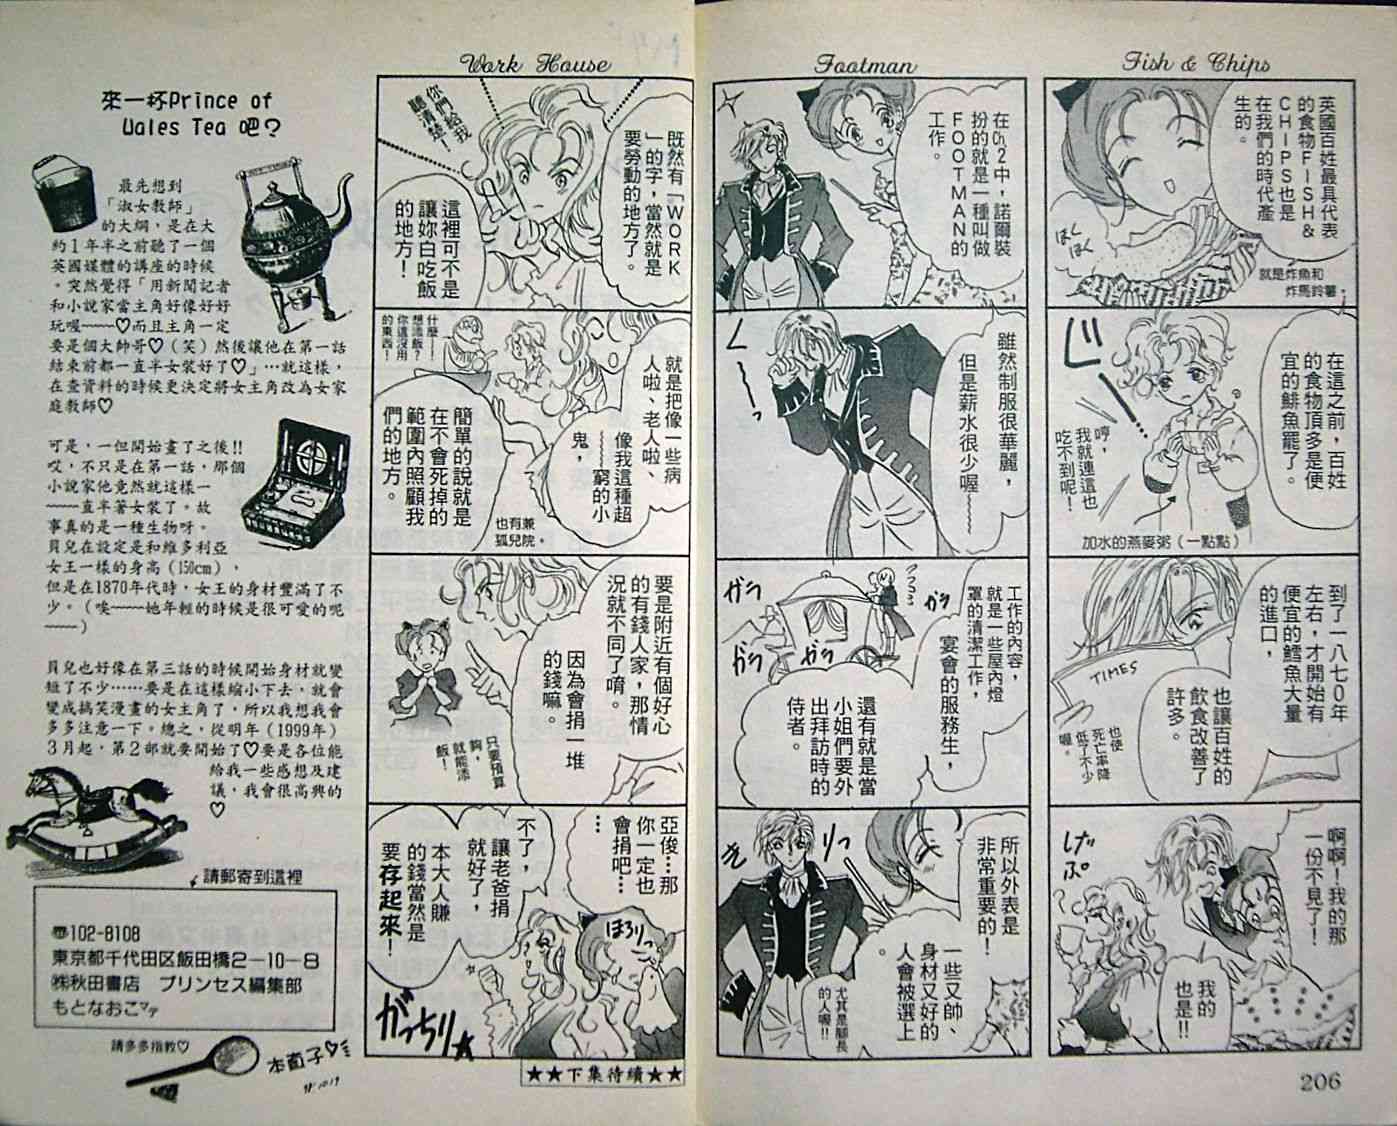 Fish & Chips
英國百姓最具代表
的食物FISH&
CHIPS也是
在我們的時代產
生的。
就是炸魚和
炸馬鈴薯。
ほくほく
在這之前，百姓
的食物頂多是便
宜的鯡魚罷了。
哼，
我就連這也
吃不到呢！
加水的燕麥粥（一點點）
到了一八七0年
左右，才開始有
便宜的鱈魚大量
的進口，
也讓百姓的
飲食改善了
許多。
TIMES
也使
死亡率降
低了不少
喔。
啊啊！我的那
一份不見了！
我的
也是!!
げぷ
206
Footman
在Ch.2中，諾爾裝
扮的就是一種叫做
FOOTMAN的
工作。
雖然制服很華麗，
但是薪水很少喔~~~~
工作的內容，
就是一些屋內燈
罩的清潔工作，
宴會的服務生，
還有就是當
小姐們要外
出拜訪時的
侍者。
ガラ
ガラ
ガラ
ガラ
所以外表是
非常重要的！
一些又帥、
身材又好的
人會被選上
尤其是腳長
的人喔!!
きりっ
Work House
你們給我
聽清楚！
既然有「WORK
」的字，當然就是
要勞動的地方了。
這裡可不是
讓妳白吃飯
的地方！
就是把像一些病
人啦、老人啦、
像我這種超
~~~~窮的小
鬼，
什麼——！
想添飯？
你這沒用
的東西！
簡單的說就是
在不會死掉的
範圍內照顧我
們的地方。
也有兼
孤兒院。
要是附近有個好心
的有錢人家，那情
況就不同了唷。
因為會捐一堆
的錢嘛。
只要預算
夠，
就能添
飯！
亞俊…那
你一定也
會捐吧…
…
不了，
讓老爸捐
就好了，
本大人賺
的錢當然是
要存起來！
ほろりっ
がっちり★
★★下集待續★★
來一杯Prince of
Wales Tea 吧？
最先想到
「淑女教師」
的大綱，是在大
約1年半之前聽了一個
英國媒體的講座的時候
。突然覺得「用新聞記者
和小說家當主角好像好好
玩喔~~~~♡而且主角一定
要是個大帥哥♡（笑）然後讓他在第一話
結束前都一直半女裝好了♡」…就這樣，
在查資料的時候更決定將女主角改為女家
庭教師♡
可是，一但開始畫了之後!!
哎，不只是在第一話，那個
小說家他竟然就這樣一
~~~~直半著女裝了。故
事真的是一種生物呀。
貝兒在設定是和維多利亞
女王一樣的身高（150cm），
但是在1870年代時，女王的身材豐滿了不
少。（唉~~~~她年輕的時候是很可愛的呢
~~~~）
貝兒也好像在第三話的時候開始身材就變
短了不少……要是在這樣縮小下去，就會
變成搞笑漫畫的女主角了，所以我想我會
多多注意一下。總之，從明年（1999年）
3月起，第2部就要開始了♡要是各位能
給我一些感想及建
議，我會很高興的
♡
請郵寄到這裡
☎102-8108
東京都千代田区飯田橋2-10-8
㈱秋田書店　プリンセス編集部
もとなおこマデ
請多多指教♡
本直子♡
98.10.19